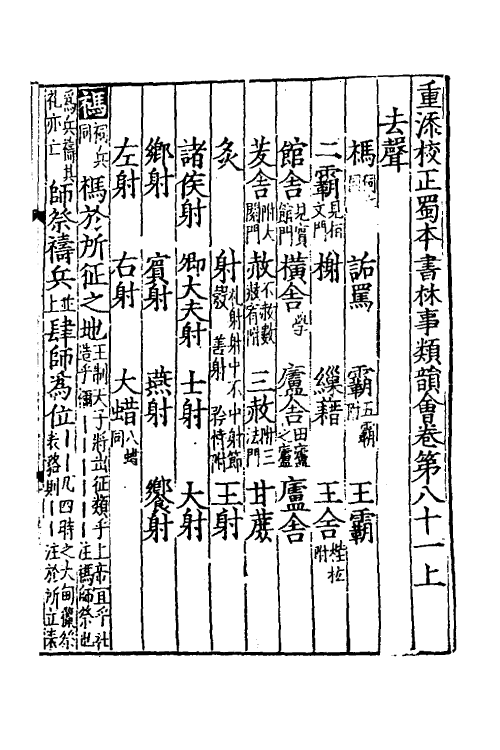 重添校正蜀本書林事類韻會卷第八十一上
去聲
禡 詬罵 霸 五霸附 王霸
二霸 見伯文門 榭 繅藉 王舍 梐枑附
館舍 見賓館門 橫舍 學 廬舍 田廬之廬 廬舍
茇舍 附大閱門 赦 不赦數赦有附 三赦 附三法門 甘蔗
炙 射 禮射射中不中射節射義善射矜恃附 王射
諸侯射 卿大夫射 士射 大射
鄉射 賓射 燕射 饗射
左射 右射 大蜡 八蜡同
禡 祠兵同 禡於所征之地 王制天子將出征類乎上帝宜乎社造乎禰丨丨丨丨丨丨注禡師祭也
為兵禱其礼亦亡 師祭禱兵 並上 肆師為位 表貉則丨丨凡四時之大甸獵祭注於所立表